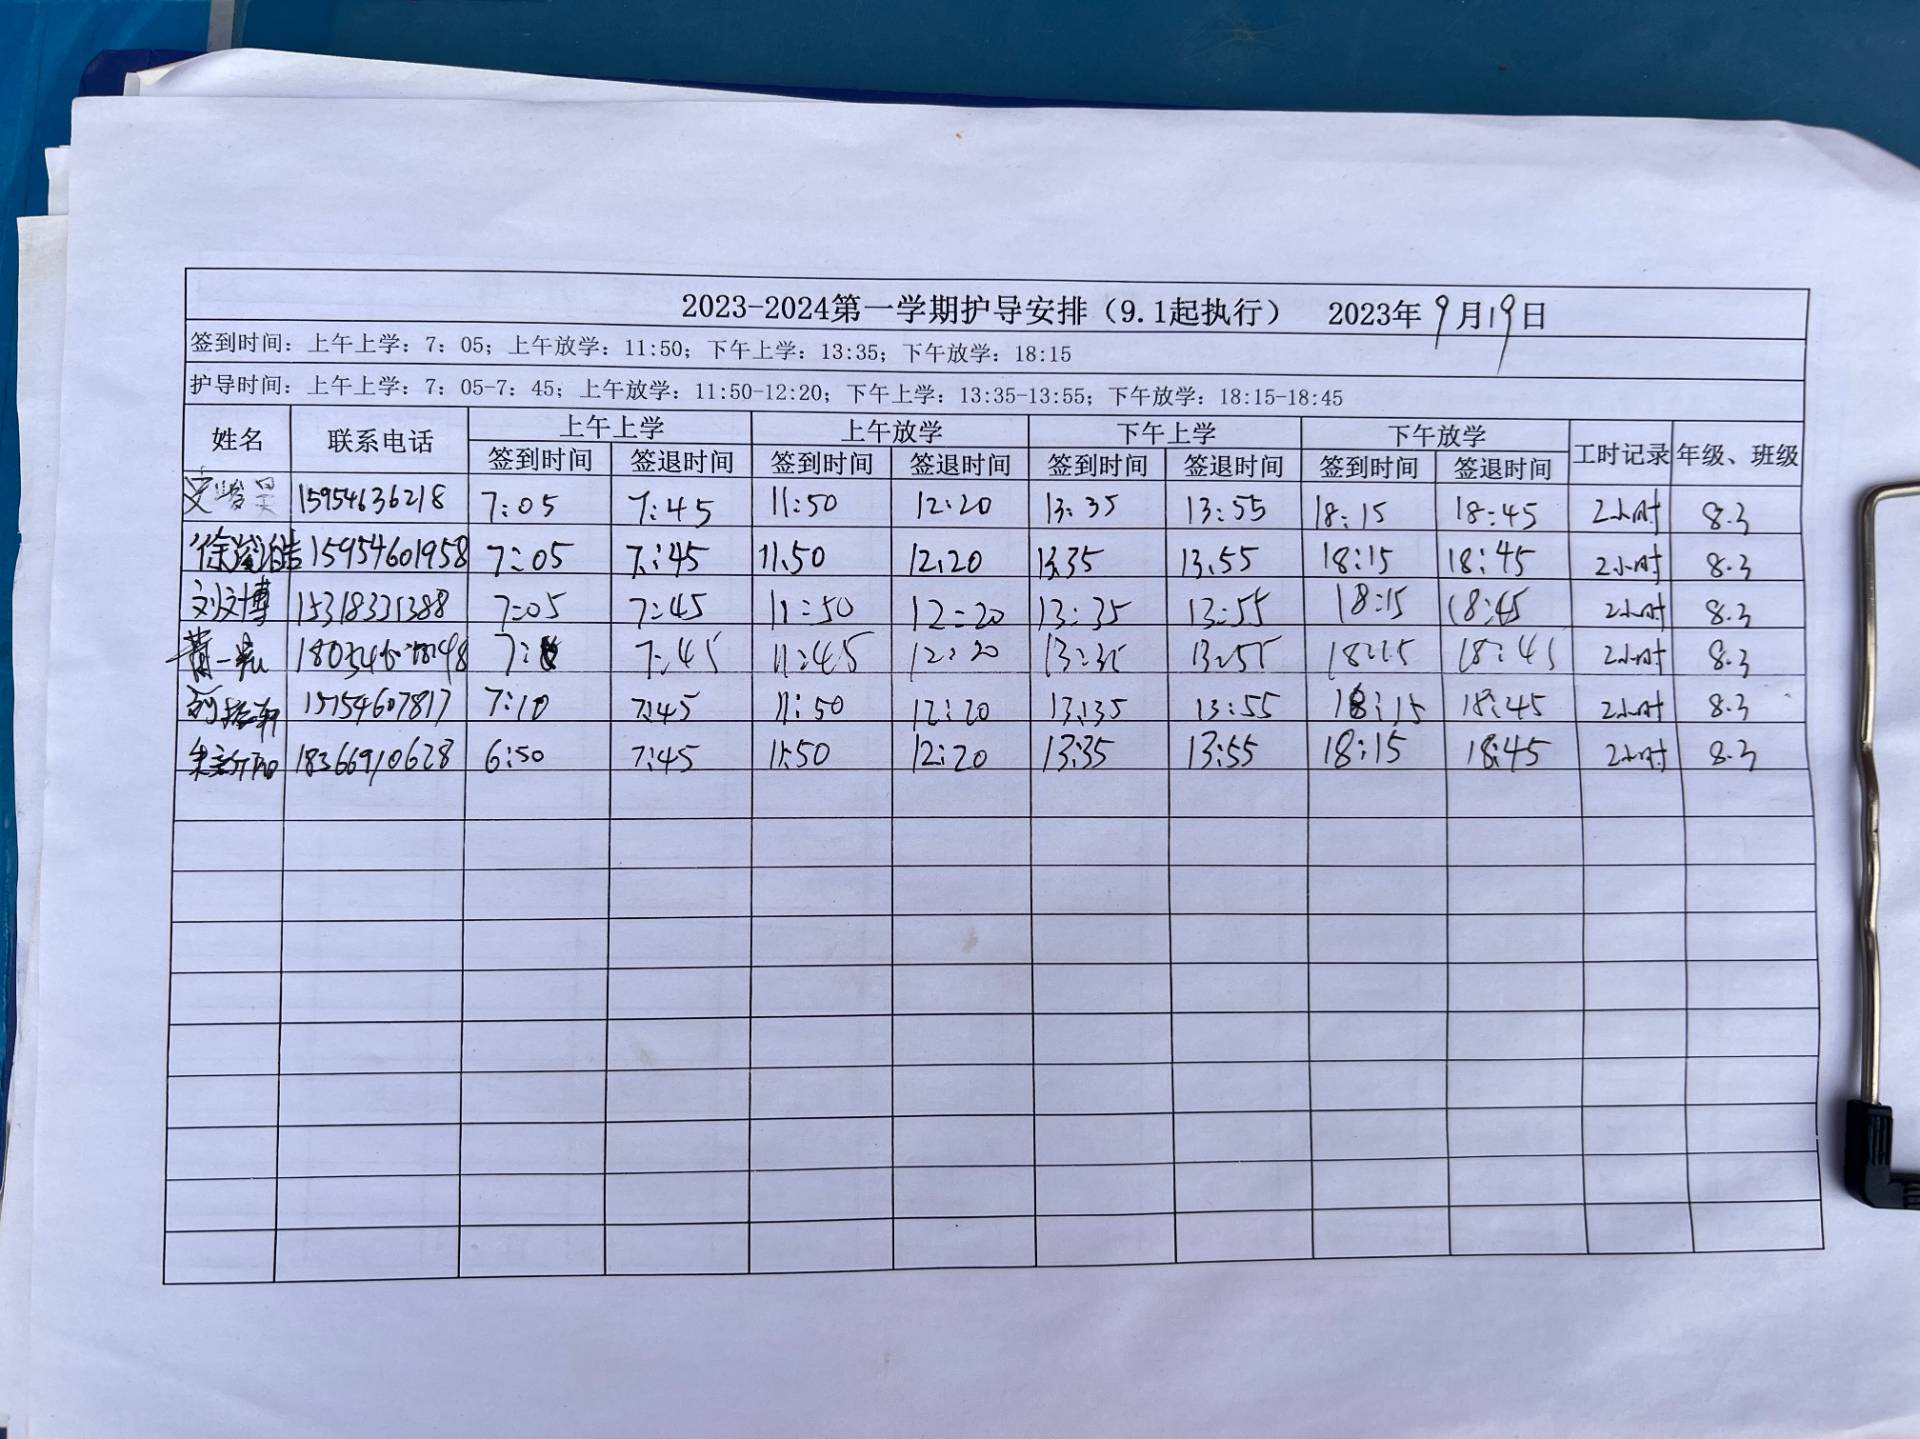 2023-2024第一学期护导安排（9.1起执行） 2023年9月19日
签到时间：上午上学：7：05；上午放学：11:50；下午上学：13:35；下午放学：18:15
护导时间：上午上学：7：05-7：45；上午放学：11:50-12:20；下午上学：13:35-13:55；下午放学：18:15-18:45
姓名 联系电话 上午上学 上午放学 下午上学 下午放学 工时记录 年级、班级
签到时间 签退时间 签到时间 签退时间 签到时间 签退时间 签到时间 签退时间
史 昊 15954636218 7:05 7:45 11:50 12:20 13:35 13:55 18:15 18:45 2小时 8.3
徐 皓 15954601958 7:05 7:45 11:50 12:20 13:35 13:55 18:15 18:45 2小时 8.3
刘文博 15318331388 7:05 7:45 11:50 12:20 13:35 13:55 18:15 18:45 2小时 8.3
一 7: 7:45 11:45 12:20 13:35 13:55 18:15 18:45 2小时 8.3
15154607817 7:10 7:45 11:50 12:20 13:35 13:55 18:15 18:45 2小时 8.3
18366910628 6:50 7:45 11:50 12:20 13:35 13:55 18:15 18:45 2小时 8.3